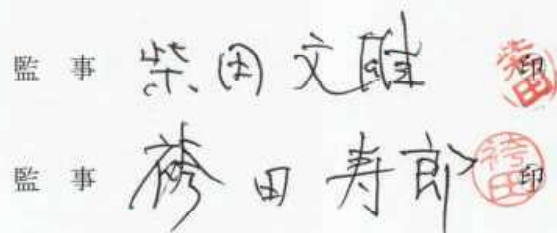 監事 柴田文雄 印
監事 袴田寿郎 印